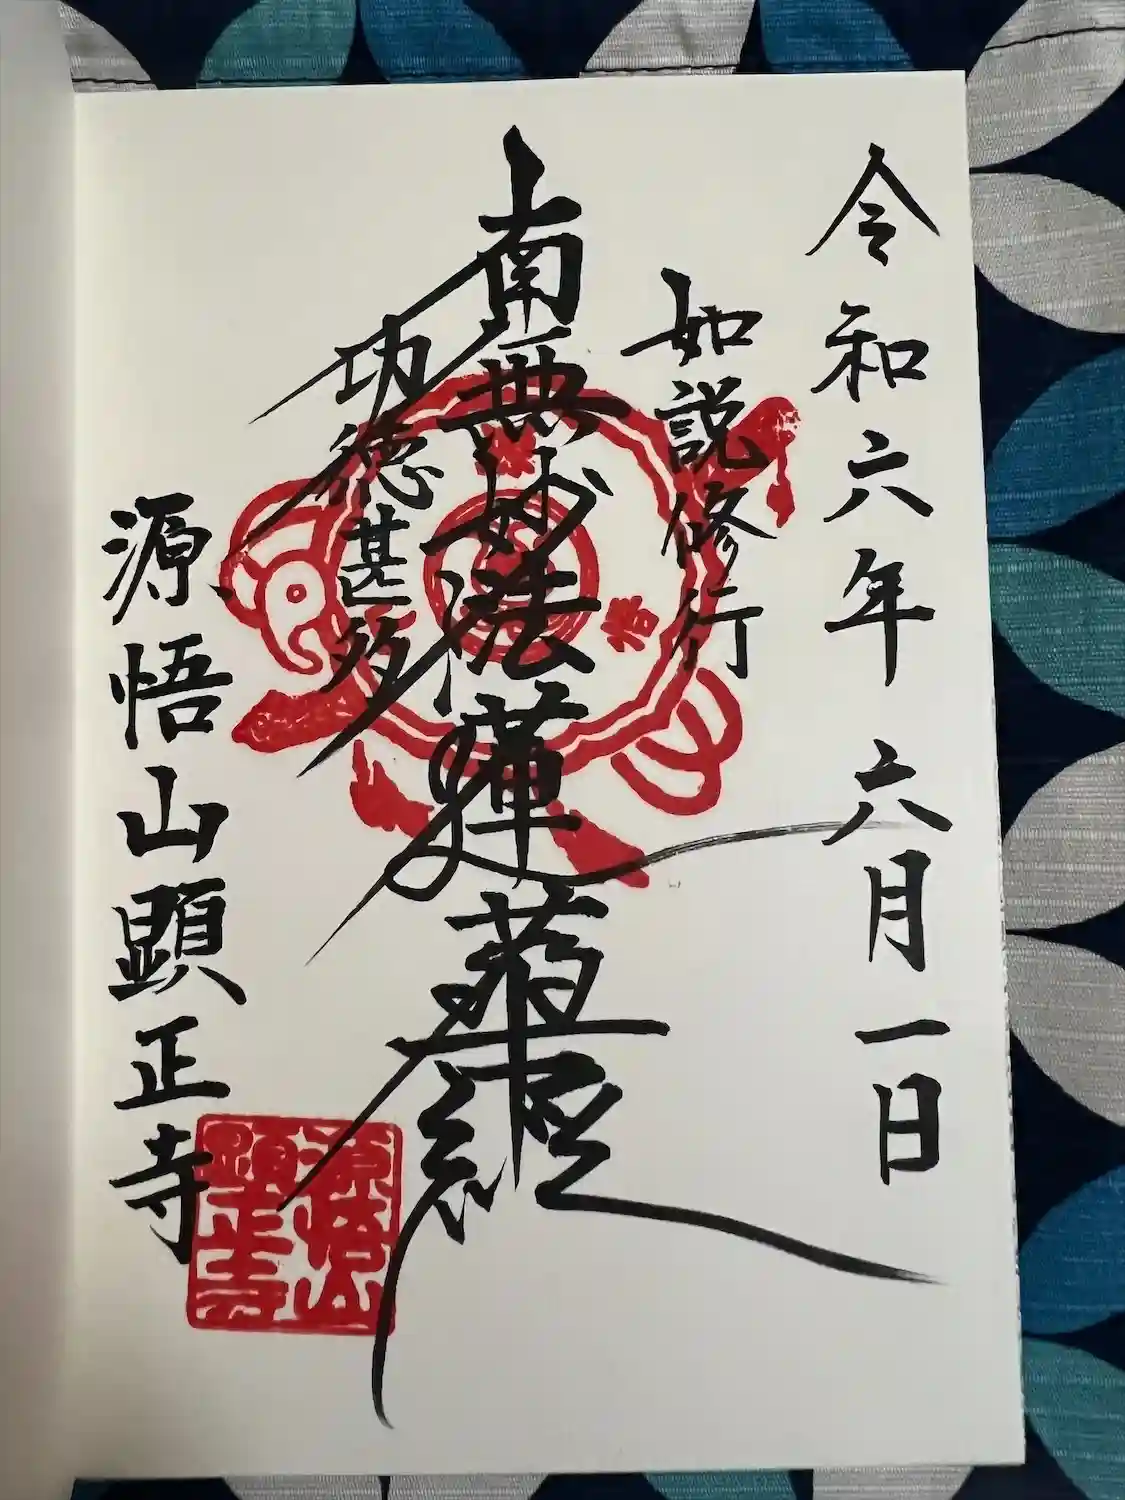 令和六年六月一日
如説修行
南無妙法蓮華經
功徳甚多
源悟山顕正寺
源悟山
顕正寺